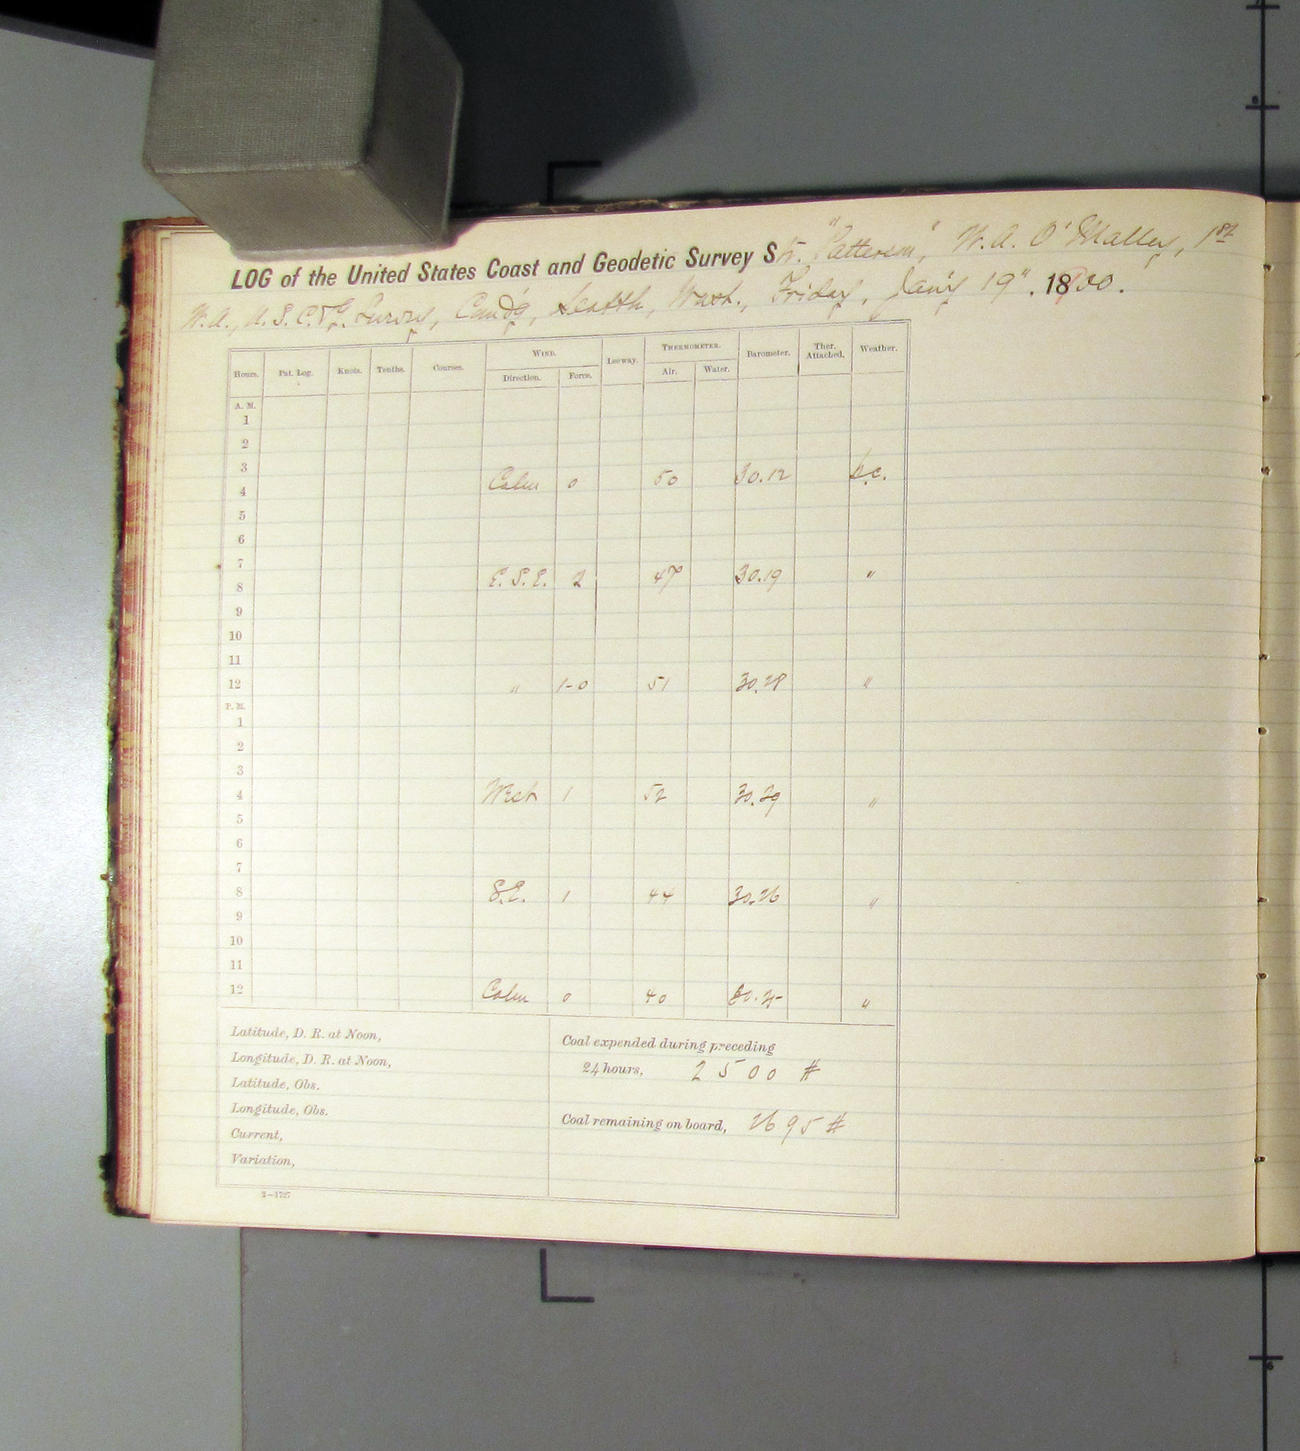 LOG of the United States Coast and Geodetic Survey Str. "Patterson", W. A. O'Malley, 1st
W. O., U. S. C. & G. Survey, Comd'g, Seattle, Wash., Friday, Jan'y 19", 1900.
Hours. Pat. Log. Knots. Tenths. Courses. WIND. Leeway. THERMOMETER. Barometer. Ther. Attached. Weather.
Direction. Force. Air. Water.
A. M.
1
2
3
4 Calm 0 50 30.12 b.c.
5
6
7
8 E. S. E. 2 47 30.19 "
9
10
11
12 " 1-0 51 30.28 "
P. M.
1
2
3
4 West 1 52 30.29 "
5
6
7
8 S.E. 1 44 30.26 "
9
10
11
12 Calm 0 40 "
Latitude, D. R. at Noon,
Longitude, D. R. at Noon,
Latitude, Obs.
Longitude, Obs.
Current,
Variation,
Coal expended during preceding
24 hours, 2500 #
Coal remaining on board, 2695 #
2—1727